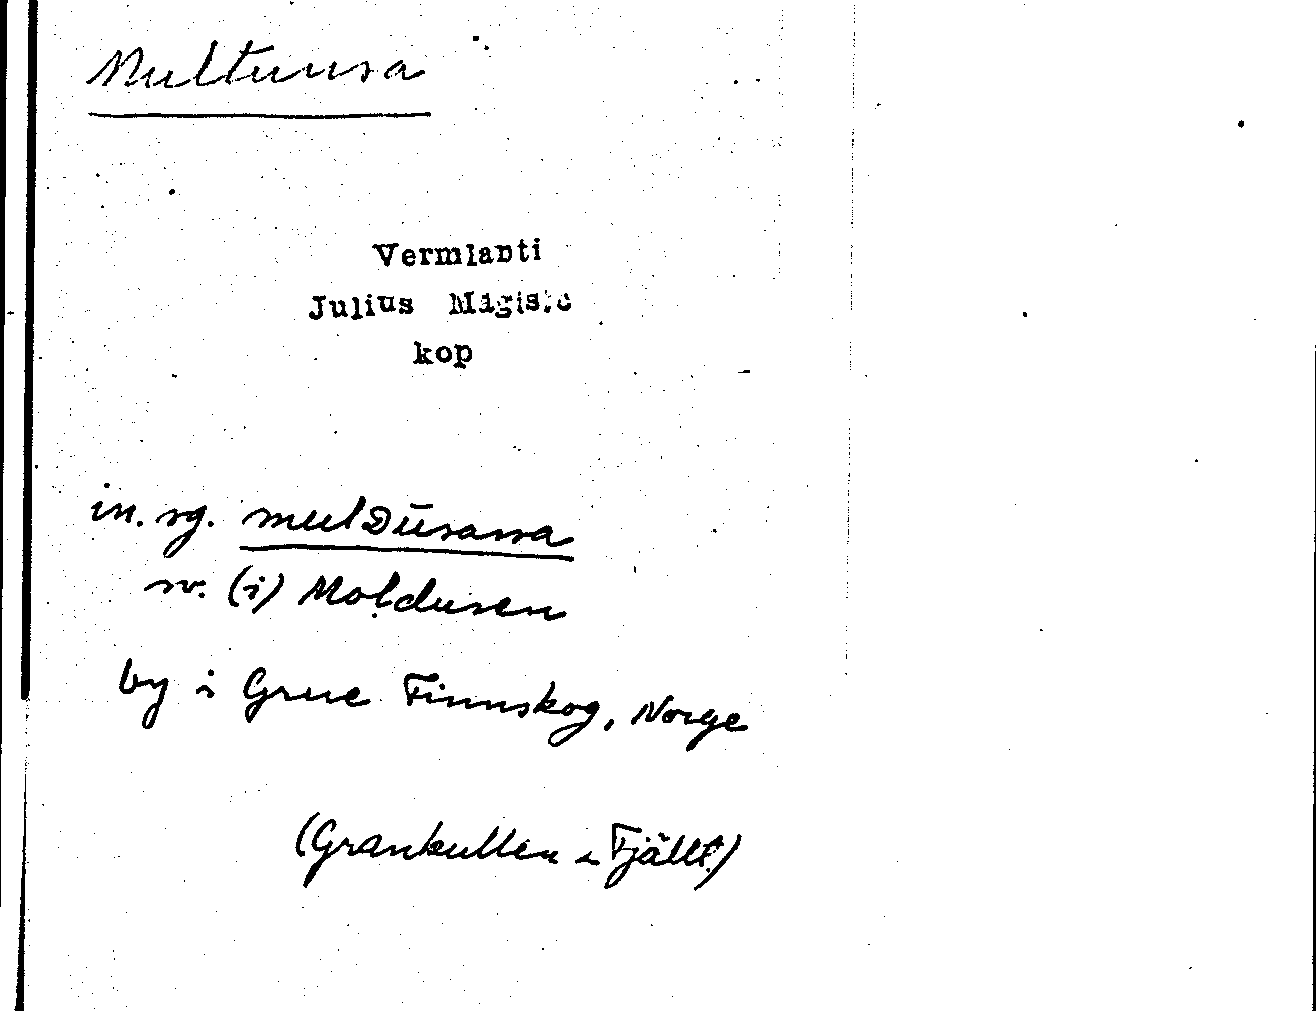 Multuusa
Vermlanti
Julius Mägiste
kop
in. sg. mulDūsassa
sv. (i) Moldusen
by i Grue Finnskog, Norge
(Grankullen i Fjällf.)